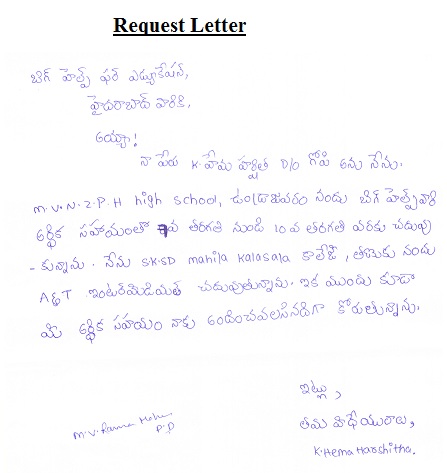 Request Letter
బిగ్ హెల్ప్ ఫర్ ఎడ్యుకేషన్,
హైదరాబాద్ వారికి,
అయ్యా!
నా పేరు K. హేమ హర్షిత D/o గోపి అను నేను.
M.V.N.Z.P.H high school, ఉండ్రాజవరం నందు బిగ్ హెల్ప్ వారి
ఆర్థిక సహాయంతో 7వ తరగతి నుండి 10 వ తరగతి వరకు చదువు
- కున్నాను. నేను SK.SD mahila kalasala కాలేజ్, తణుకు నందు
A&T ఇంటర్‌మీడియట్ చదువుతున్నాను. ఇక ముందు కూడా
మీ ఆర్థిక సహాయం నాకు అందించవలసినదిగా కోరుతున్నాను.
ఇట్లు,
తమ విధేయురాలు,
K.Hema Harshitha.
M.V. Rama
P.D